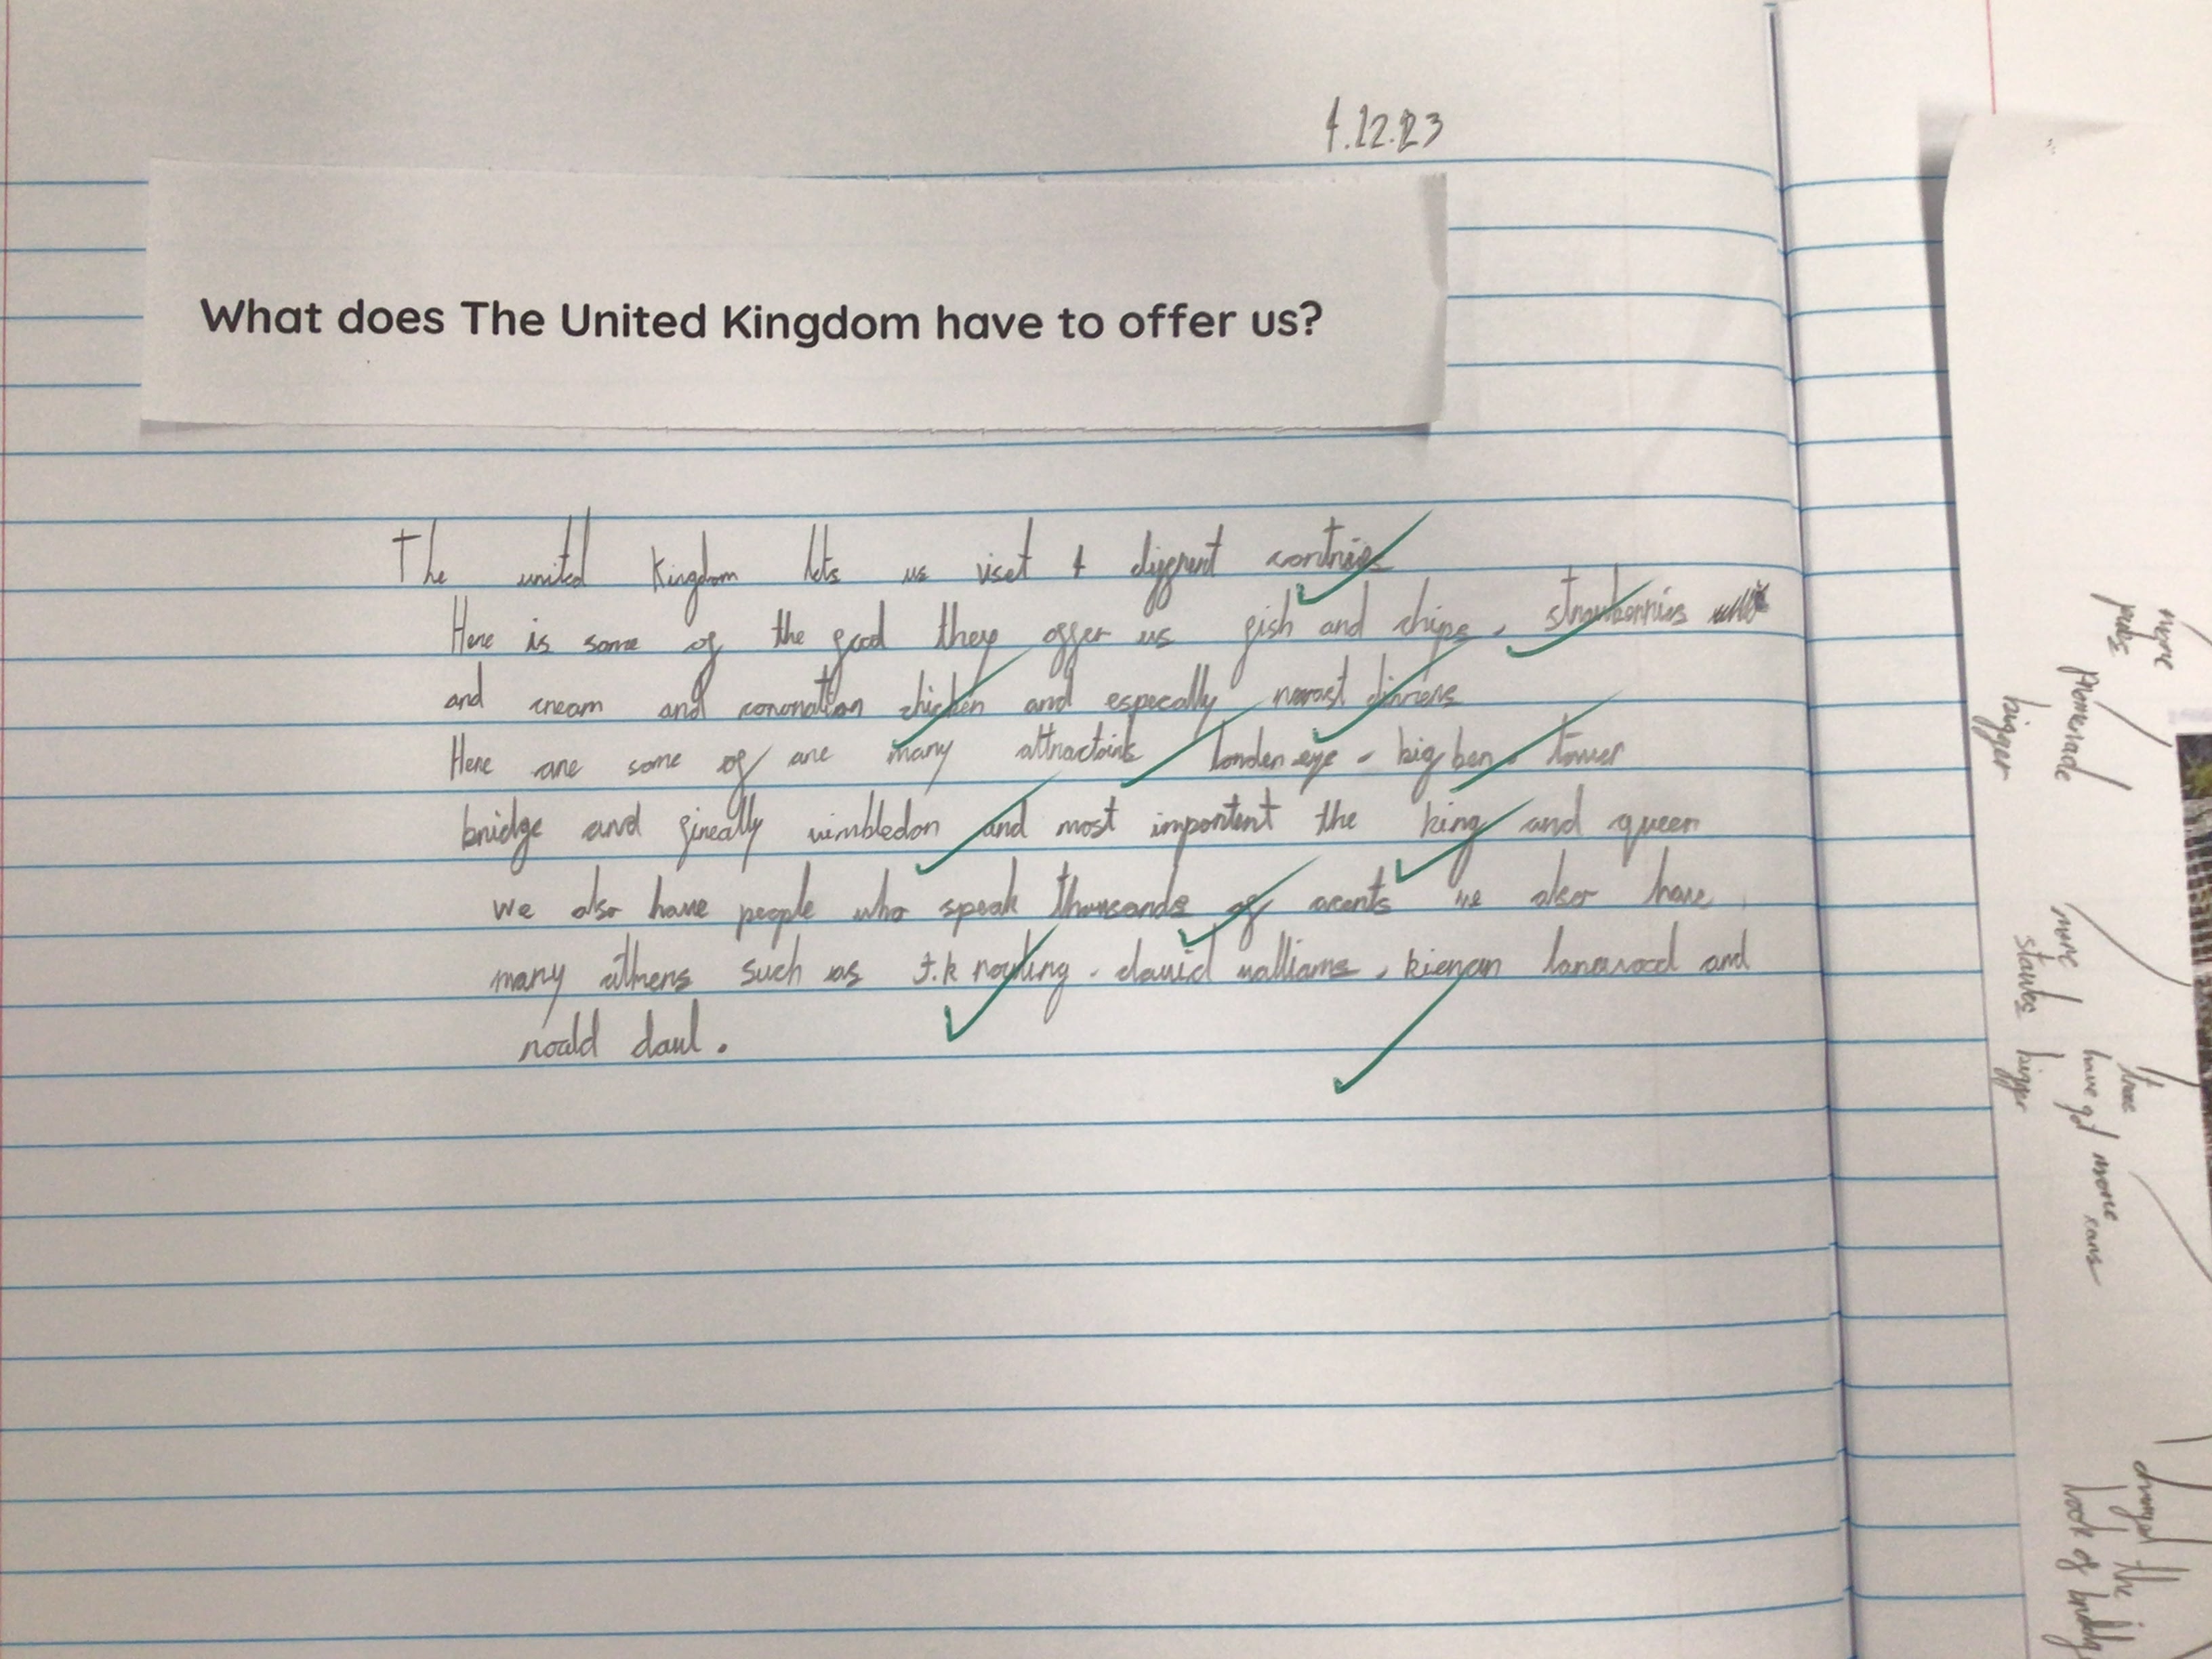 4.12.23
What does The United Kingdom have to offer us?
The united Kingdom lets us viset 4 diffrent contries
Here is some of the food they offer us fish and chips, strawberries
and cream and coronation chicken and especally roast dinners
Here are some of are many attractoins londen eye, big ben, tower
bridge and fineally wimbledon and most importent the king and queen
we also have people who speak thousands of acents we also have
many athers such as J.k rowling, david walliams, kieran larwood and
roald daul.
more
pubs
Promenade
bigger
more
stawes
bigger
trees
have got more
cars
the
look of